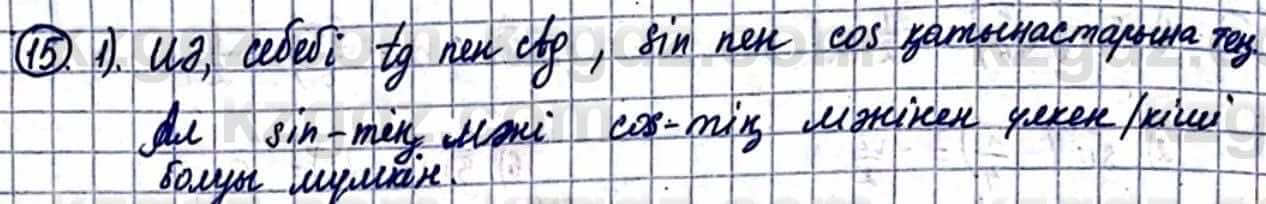 15. 1). Иә, себебі tg пен ctg, sin пен cos қатынастарына тең.
Ал sin-тең мәні cos-тің мәнінен үлкен/кіші
болуы мүмкін.